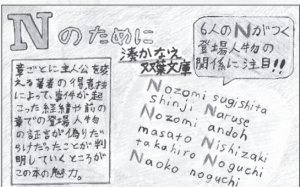 Nのために
湊かなえ
双葉文庫
6人のNがつく
登場人物の
関係に注目!!
章ごとに主人公を変
える著者の得意技
によって、事件が起
こった経緯や前の
章での登場人物
の証言が偽りだ
らけだったことが判
明していくところが
この本の魅力。
Nozomi sugishita
shinji Naruse
Nozomi andoh
masato Nishizaki
takahiro Noguchi
Naoko noguchi